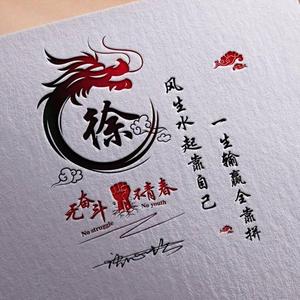 徐
风生水起靠自己
一生输赢全靠拼
无奋斗 不青春
No struggle No youth